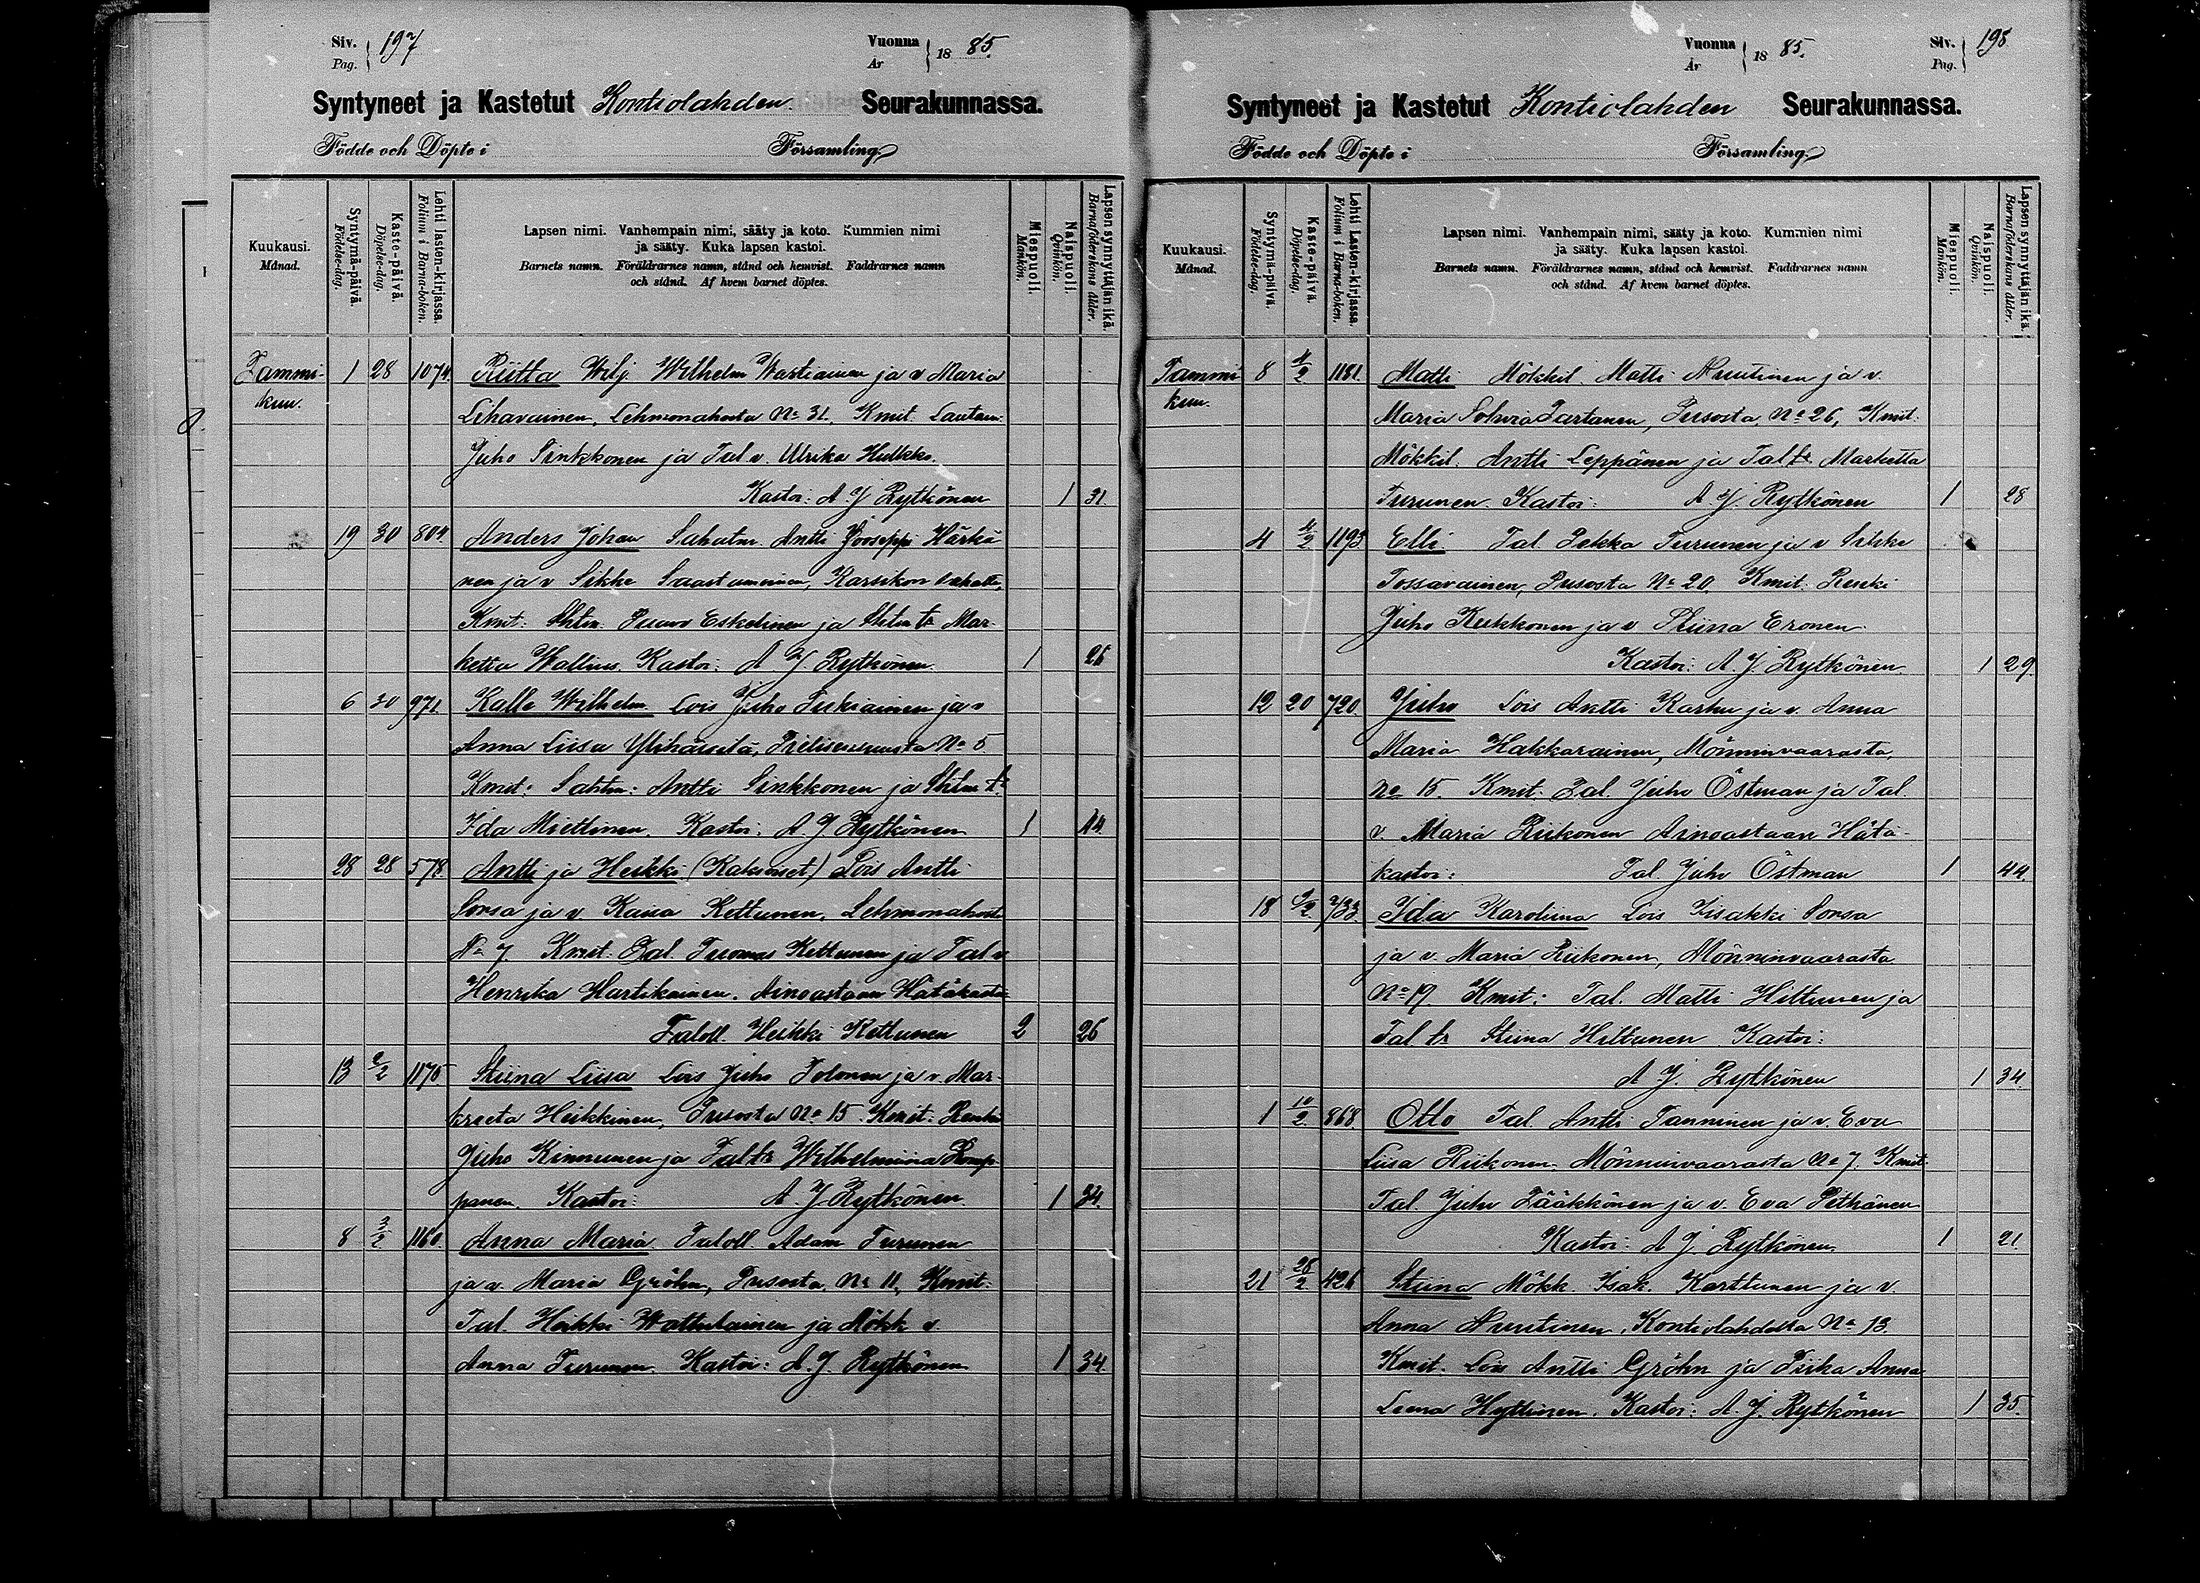 Siv. Pag. 197
Vuonna År 1885.
Syntyneet ja Kastetut Kontiolahden Seurakunnassa.
Födde och Döpte i Församling.
Kuukausi. Månad.
Syntymä-päivä. Födelse-dag.
Kaste-päivä. Döpelse-dag.
Lehti lasten-kirjassa. Folium i Barna-boken.
Lapsen nimi. Vanhempain nimi, sääty ja koto. Kummien nimi
ja sääty. Kuka lapsen kastoi.
Barnets namn. Föräldrarnes namn, stånd och hemvist. Faddrarnes namn
och stånd. Af hvem barnet döptes.
Miespuoli. Mankön.
Naispuoli. Qvinkön.
Lapsen synnyttäjän ikä. Barnaföderskans ålder.
Tammi- 1 28 1074. Riitta Wilj Wilhelm Wartiainen ja v Maria
kuu. Lihavainen, Lehmonahosta No 31. Kmit. Lautam.
Juho Sinkkonen ja Tal v. Ulrika Hulkko.
Kastoi: A J Rytkönen 1 31.
19 30 804. Anders Johan Sahatm. Antti Jooseppi Härkö
nen ja v Sikke Saastamoinen, Karsikon sahalta,
Kmit: Shtm. Paavo Eskelinen ja Shtm tr Mar-
ketta Wallius. Kastoi: A J Rytkönen. 1 26
6 30 971. Kalle Wilhelm Lois Juho Turiainen ja v
Anna Liisa Ylihärsilä, Pielisensuusta No 5.
Kmit: Sahtm: Antti Sinkkonen ja Shtm tr
Ida Miettinen. Kastoi: A. J Rytkönen 1 44
28 28 578. Antti ja Heikki (Kaksoiset) Lois Antti
Sorsa ja v Kaisa Kettunen, Lehmonahosta
No 7. Kmit. Tal. Tuomas Kettunen ja Tal v
Henrika Hartikainen. Ainoastaan Hätäkastoi
Taloll. Heikki Kettunen 2 26
13 2/2 1175 Stiina Liisa Lois Juho Tolonen ja v. Mar-
kreeta Heikkinen, Pusosta No 15. Kmit: Renki
Juho Kinnunen ja Tal tr Wilhelmiina Romp-
panen. Kastoi: A. J. Rytkönen. 1 34.
8 3/2 1160. Anna Maria Taloll. Adam Turunen
ja v. Maria Gröhn, Pusosta, No 11, Kmit:
Tal. Heikki Wattulainen ja Mökk v
Anna Turunen. Kastoi: A. J. Rytkönen 1 34.
Vuonna År 1885.
Siv. Pag. 198
Syntyneet ja Kastetut Kontiolahden Seurakunnassa.
Födde och Döpte i Församling.
Kuukausi. Månad.
Syntymä-päivä. Födelse-dag.
Kaste-päivä. Döpelse-dag.
Lehti Lasten-kirjassa. Folium i Barna-boken.
Lapsen nimi. Vanhempain nimi, sääty ja koto. Kummien nimi
ja sääty. Kuka lapsen kastoi.
Barnets namn. Föräldrarnes namn, stånd och hemvist. Faddrarnes namn
och stånd. Af hvem barnet döptes.
Miespuoli. Mankön.
Naispuoli. Qvinkön.
Lapsen synnyttäjän ikä. Barnaföderskans ålder.
Tammi 8 4/2 1181. Matti Mökkil. Matti Nuutinen ja v.
kuu. Maria Sohvia Partanen, Pusosta, No 26, Kmit.
Mökkil. Antti Leppänen ja Tal tr Marketta
Turunen. Kastoi: A J. Rytkönen 1 28
4 4/2 1193 Elli Tal. Pekka Turunen ja v Sikke
Tossavainen, Pusosta No 20. Kmit. Renki
Juho Kukkonen ja v Stiina Eronen.
Kastoi: A. J. Rytkönen. 1 29.
12 20 720. Juho Lois Antti Karhu ja v. Anna
Maria Hakkarainen, Mönninvaarasta,
No 15. Kmit. Tal. Juho Östman ja Tal.
v. Maria Riikonen Ainoastaan Hätä-
kastoi: Tal Juho Östman 1 44.
18 9/2 733. Ida Karoliina Lois Iisakki Sorsa
ja v. Maria Riikonen, Mönninvaarasta
No 19. Kmit: Tal. Matti Hiltunen ja
Tal tr Stiina Hiltunen Kastoi:
A J. Rytkönen 1 34.
1 10/2 868. Otto Tal Antti Tanninen ja v. Eva
Liisa Riikonen Mönninvaarasta No 7. Kmit
Tal. Juho Pääkkönen ja v. Eva Pitkänen
Kastoi: A J. Rytkönen. 1 21.
21 28/2 426 Stiina Mökk. Isak. Karttunen ja v.
Anna Nuutinen, Kontiolahdelta No 13.
Kmit. Lois Antti Gröhn ja Piika Anna
Leena Hyttinen. Kastoi: A. J. Rytkönen 1 35.